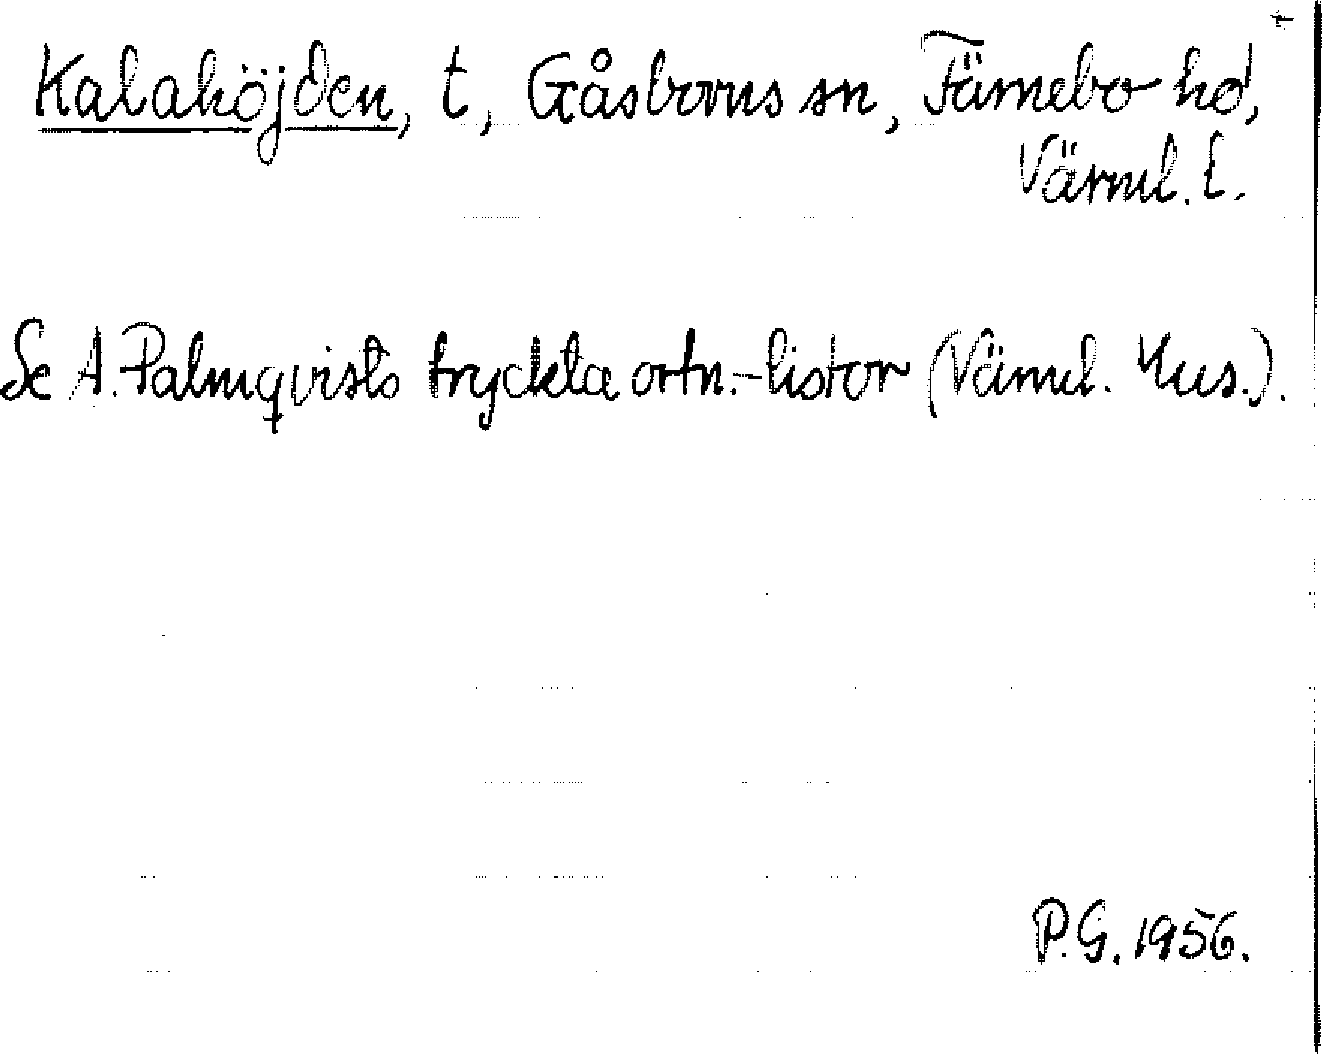 Kalahöjden, t, Gåsborns sn, Färnebo hd,
Värml. l.
Se A. Palmqvists tryckta ortn.-listor (Värml. Mus.).
P.G. 1956.